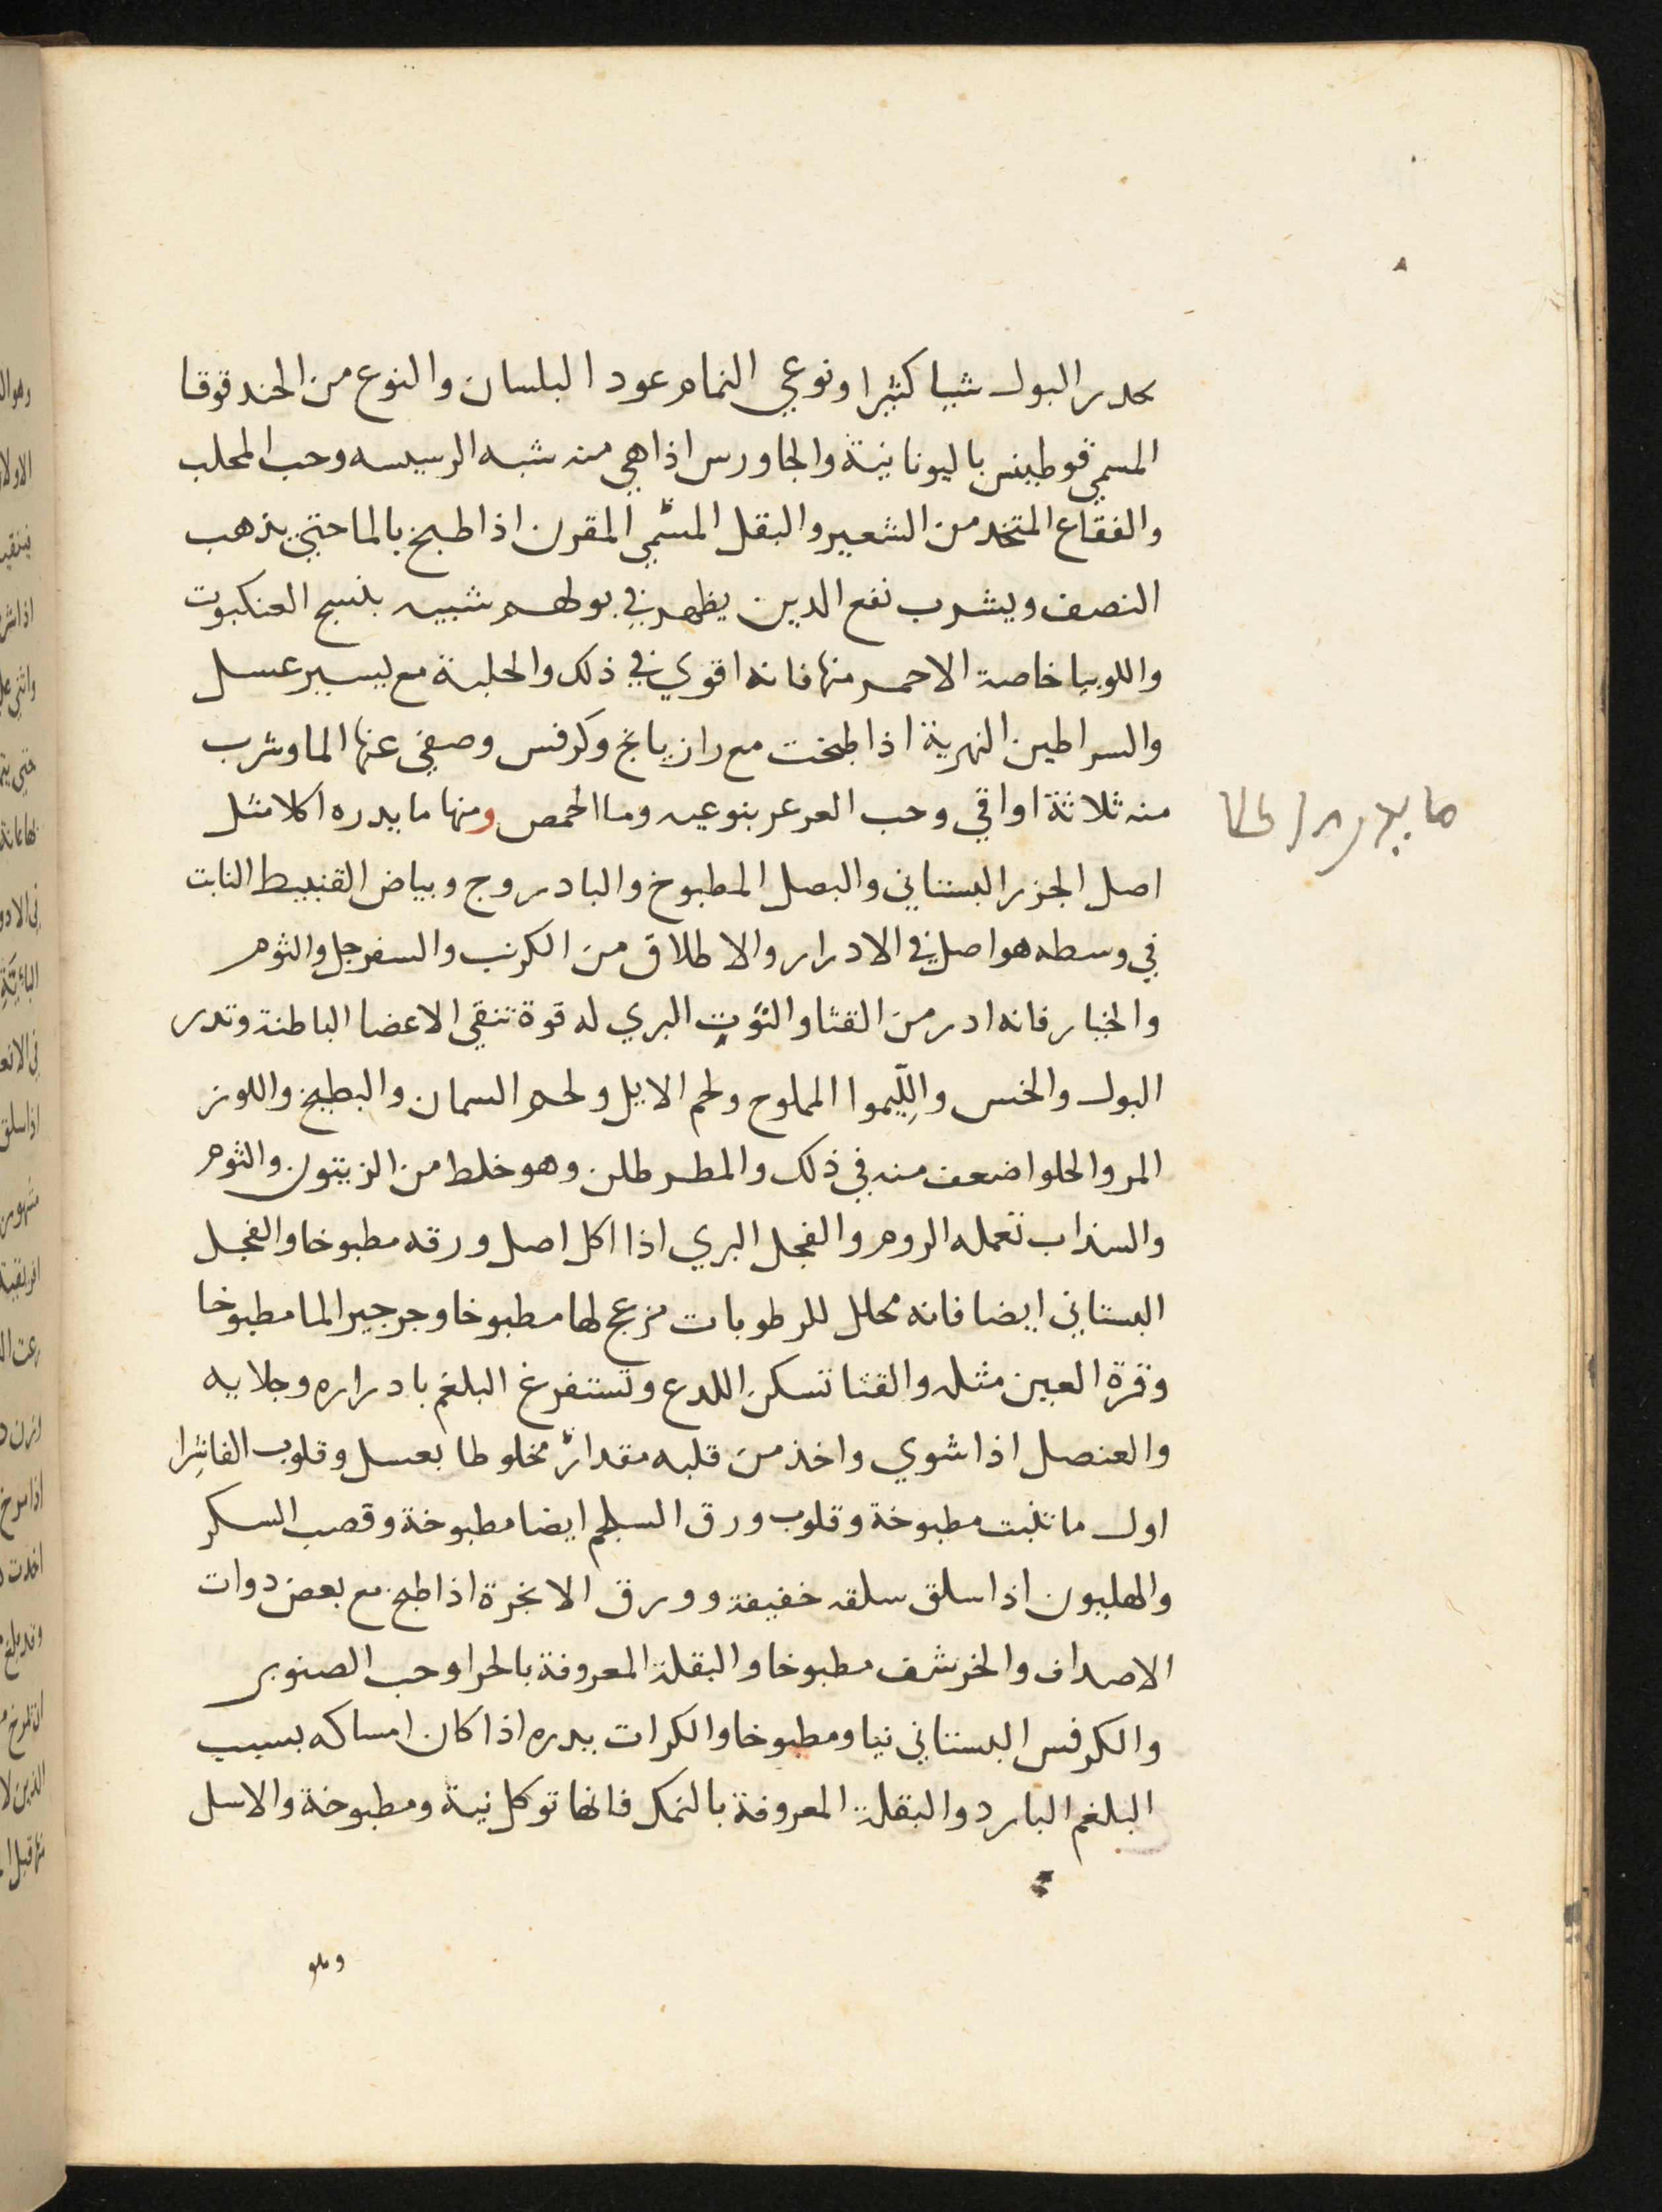 يحدر البول شيا كثيرا ونوعي النمام عود البلسان والنوع من الحندقوقا
المسمي قوطينس باليونانية والجاورس اذا هي منه شبه الرسيسه وحب المحلب
والفقاع المتخد من الشعير والبقل المسّمي المقرن اذا طبخ بالما حتي يذهب
النصف ويشرب نفع الدين يظهر في بولهم شبيه بنسج العنكبوت
واللوبيا خاصة الاحمر منها فانه اقوي في ذلك والحلبة مع يسير عسل
والسراطين النهرية اذا طبخت مع رازيانج وكرفس وصفي عنها الما وشرب
منه ثلاثة اواقي وحب العرعر بنوعيه وما الحمص ومنها ما يدره اكلا مثل
ما يدره اكلا
اصل الجزر البستاني والبصل المطبوخ والبادروج وبياض القنبيط النابت
في وسطه هو اصل في الادرار والاطلاق من الكرنب والسفرجل والثوم
والخيار فانه ادر من القثا والتوت البري له قوة تنقي الاعضا الباطنة وتدر
البول والخس والِلّيموا المملوح ولحم الايل ولحم السمان والبطيخ واللوز
المر والحلو اضعف منه في ذلك والمطرطلن وهو خلط من الزيتون والثوم
والسذاب تعمله الروم والفجل البري اذا اكل اصل ورقه مطبوخا والفجل
البستاني ايضا فانه محلل للرطوبات مزعج لها مطبوخا وجرجير الما مطبوخا
وقرة العين مثله والقثا تسكن اللدع وتستفرغ البلغم بادراره وجلايه
والعنصل اذا شوي واخذ من قلبه مقدارٌ مخلوطا بعسل وقلوب الفاشِرا
اول ما تنبت مطبوخة وقلوب ورق السلجم ايضا مطبوخة وقصب السكر
والهليون اذا سلق سلقه خفيفة وورق الانجرة اذا طبخ مع بعض دوات
الاصداف والخرشف مطبوخا والبقلة المعروفة بالحرا وحب الصنوبر
والكرفس البستاني نيا ومطبوخا والكرات يدره اذا كان امساكه بسبب
البلغم البارد والبقلة المعروفة بالنمكل فانها توكل نية ومطبوخة والاسل